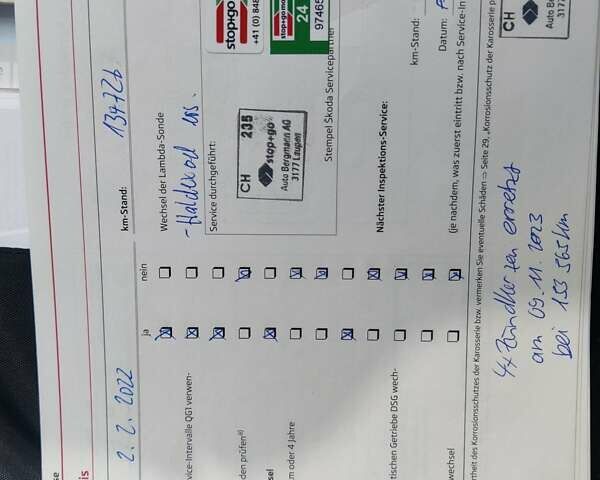 is
2. 2. 2022
km-Stand:
134726
ja
nein
Wechsel der Lambda-Sonde
- Haldexoel
vice-Intervalle QG1 verwen-
Service durchgeführt:
den prüfen
sel
m oder 4 Jahre
tischen Getriebe DSG wech-
wechsel
stop+go
+41 (0) 848
24
97465
CH
235
stop+go
Auto Bergmann AG
3177 Laupen
Stempel Skoda Servicepartner
Nächster Inspektions-Service:
km-Stand:
Datum:
(je nachdem, was zuerst eintritt bzw. nach Service-In
rtheit des Korrosionsschutzes der Karosserie bzw. vermerken Sie eventuelle Schäden ⇒ Seite 29, „Korrosionsschutz der Karosserie p
CH
Auto Bergm
3177
4x Zündkerzen ersetzt
am 09.11.2023
bei 153 565 km